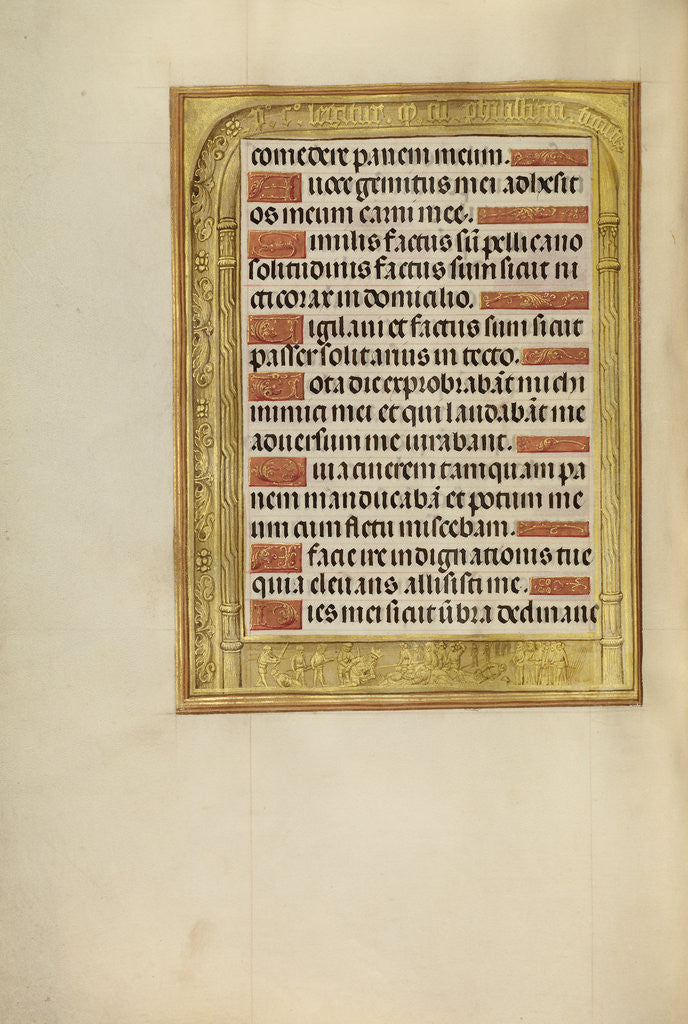 comedere panem meum.
A uoce gemitus mei adhesit
os meum carni mee.
Similis factus sū pellicano
solitudinis factus sum sicut ni
cticorax in domicilio.
Vigilaui et factus sum sicut
passer solitarius in tecto.
Tota die exprobrabāt michi
inimici mei et qui laudabāt me
aduersum me iurabant.
Quia cinerem tamquam pa
nem manducabā et potum me
um cum fletu miscebam.
A facie ire indignationis tue
quia eleuans allisisti me.
Dies mei sicut ūbra declinaue